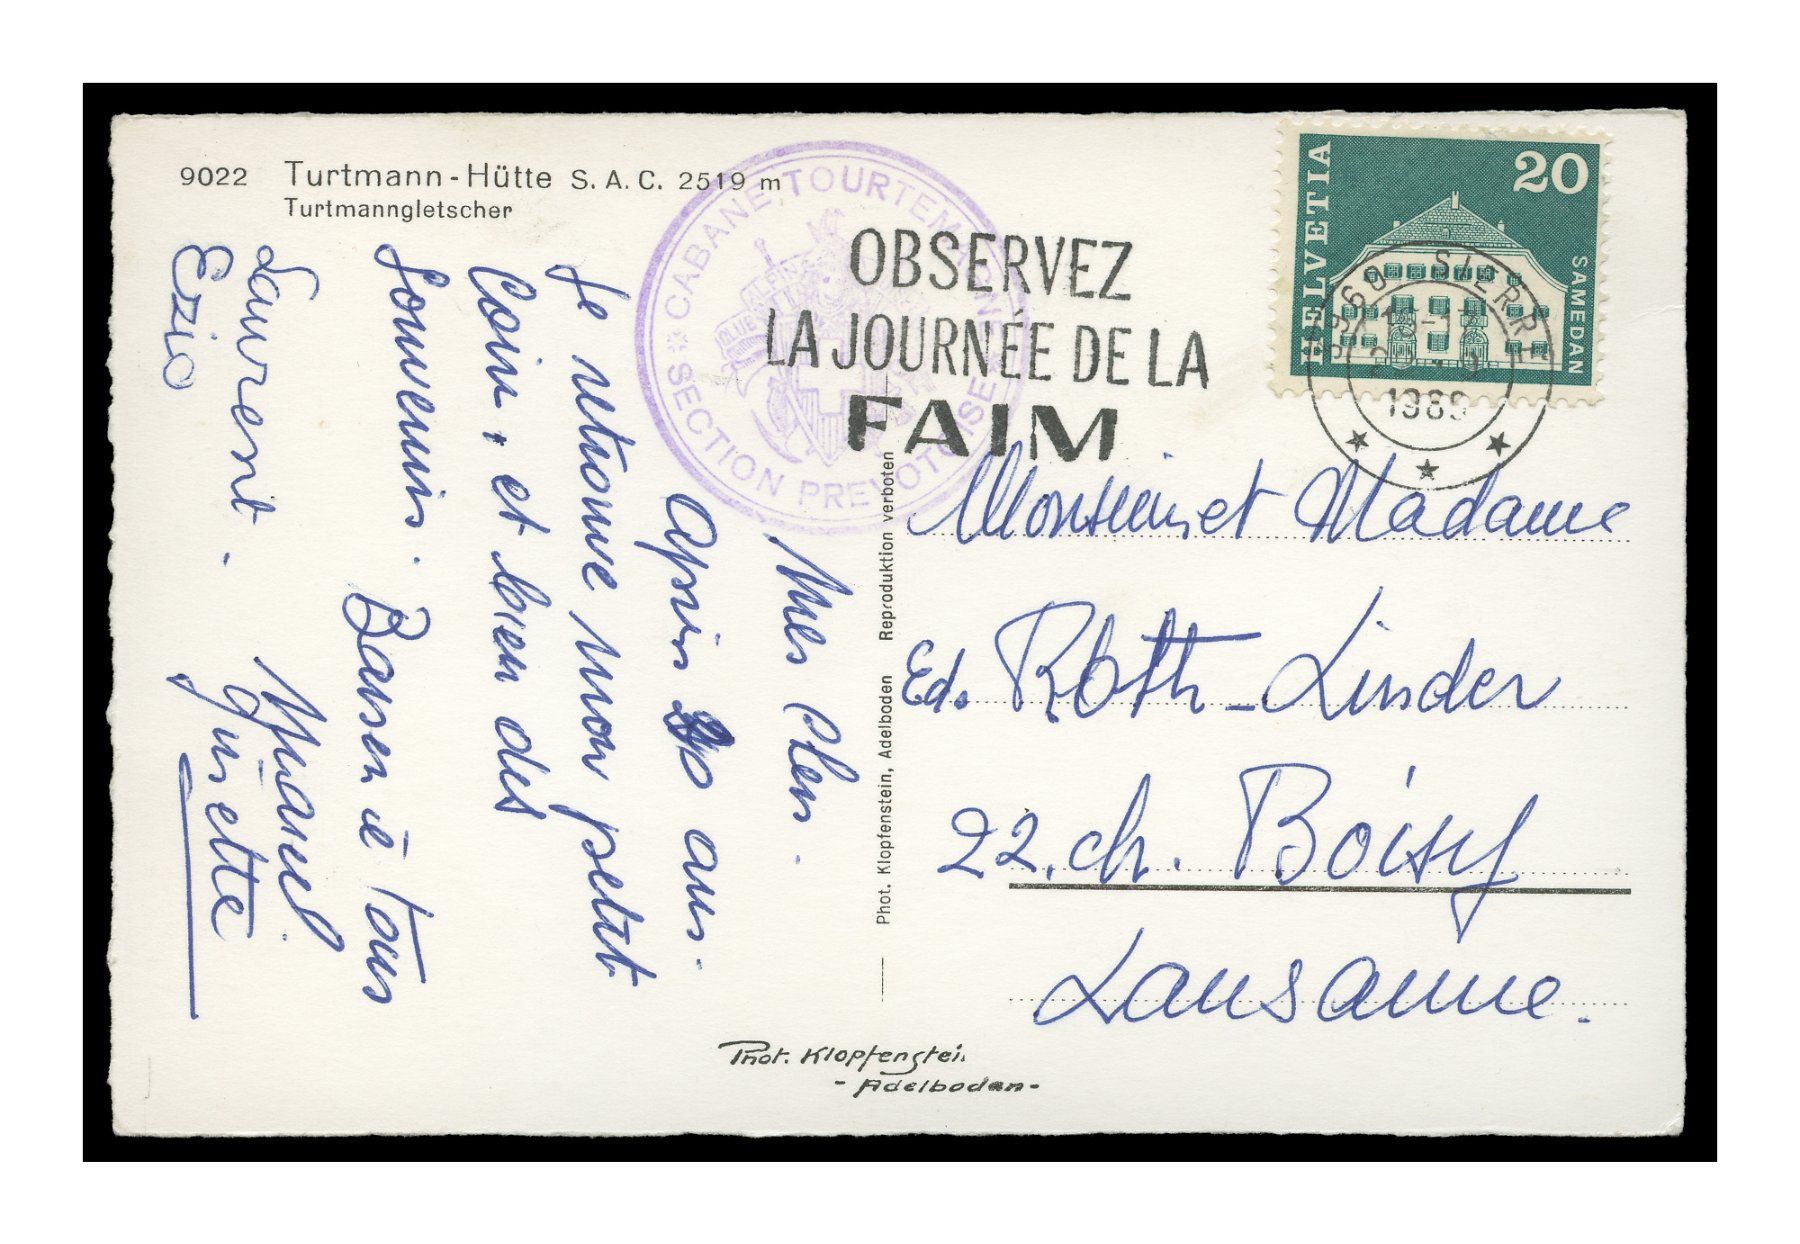 9022 Turtmann-Hütte S. A. C. 2519 m
Turtmanngletscher
CABANE TOURTEMAGNE
SECTION PREVOTOISE
CLUB ALPIN
OBSERVEZ
LA JOURNÉE DE LA
FAIM
HELVETIA
20
SAMEDAN
SIERRE
Mes Chers.
Après 20 ans.
Je retrouve mon petit
Coin, et bien des
Souvenirs. Baisers à Tous
Laurent. Manuel
Ezio Ginette
Phot. Klopfenstein, Adelboden Reproduktion verboten
Monsieur et Madame
Ed. Roth-Linder
22. ch. Boisy
Lausanne.
Phot. Klopfenstein
- Adelboden -